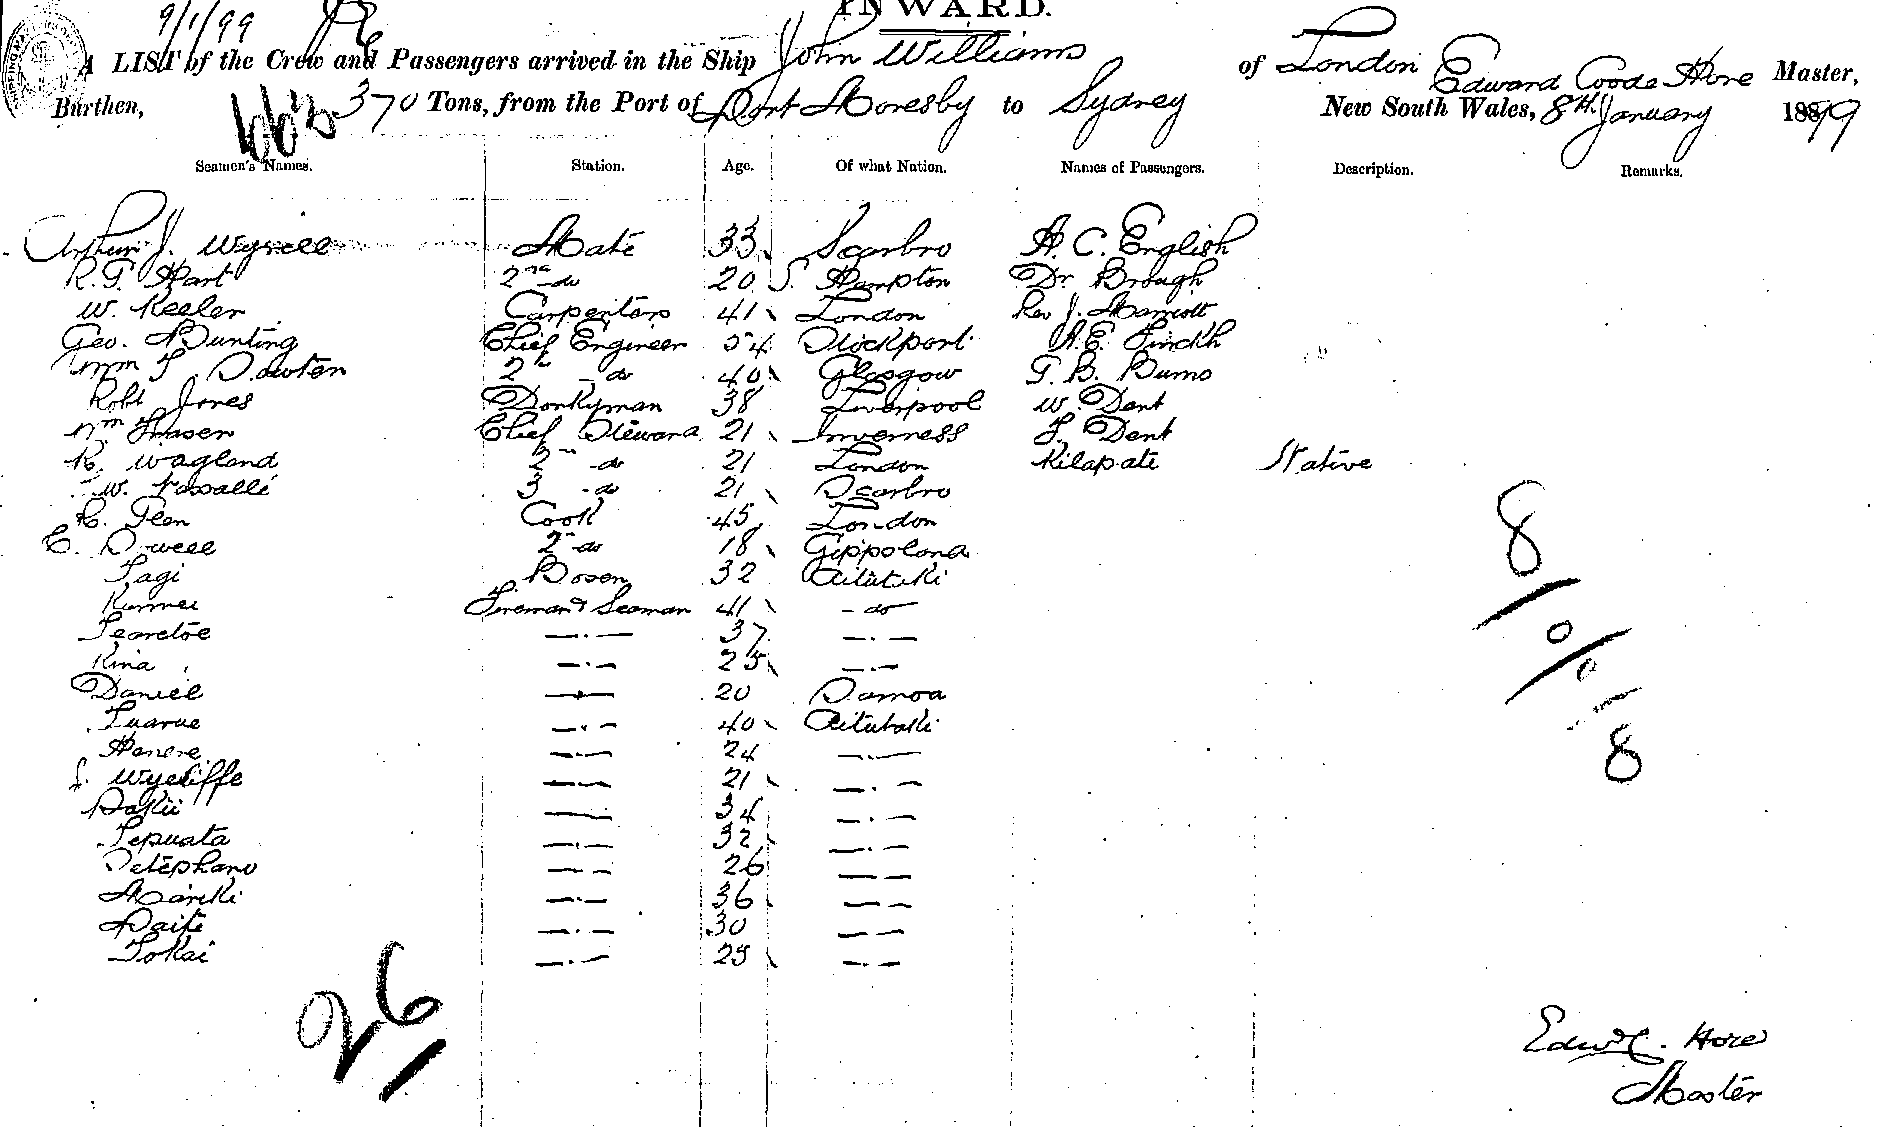 INWARD.
9/1/99
A LIST of the Crew and Passengers arrived in the Ship John Williams of London Edward Coode Hore Master,
Burthen, 370 Tons, from the Port of Port Moresby to Sydney New South Wales, 8th January 1899
Seamen's Names. Station. Age. Of what Nation. Names of Passengers. Description. Remarks.
Arthur J. Wyrill Mate 33 Scarbro A. C. English
R. G. Hart 2nd do 20 S. Hampton Dr Brough
W. Keeler Carpenter 41 London Rev J. Marriott
Geo. Bunting Chief Engineer 54 Stockport A. E. Finckh
Wm J. Dowten 2nd do 40 Glasgow G. B. Burns
Robt Jones Donkyman 38 Liverpool W. Dent
Wm Fraser Chief Steward 21 Inverness F. Dent
R. Wagland 2nd do 21 London Kilapate Native
W. Vassalli 3 do 21 Scarbro
R. Glen Cook 45 London
E. Sowell 2nd do 18 Gippsland
Tagi Bosen 32 Aitutaki
Kunnei Fireman & Seaman 41 - do -
Tearetoe —.— 37 —.—
Kina —.— 25 —.—
Daniel —.— 20 Samoa
Tuarue —.— 40 Aitutaki
Henere —.— 24 —.—
J. Wycliffe —.— 21 —.—
Pakii —.— 34 —.—
Tepuata —.— 32 —.—
Setephano —.— 26 — —
Mariki —.— 36 — —
Paite —.— 30 — —
Tokai —.— 25 —.—
8
8
26
Edwd C. Hore
Master